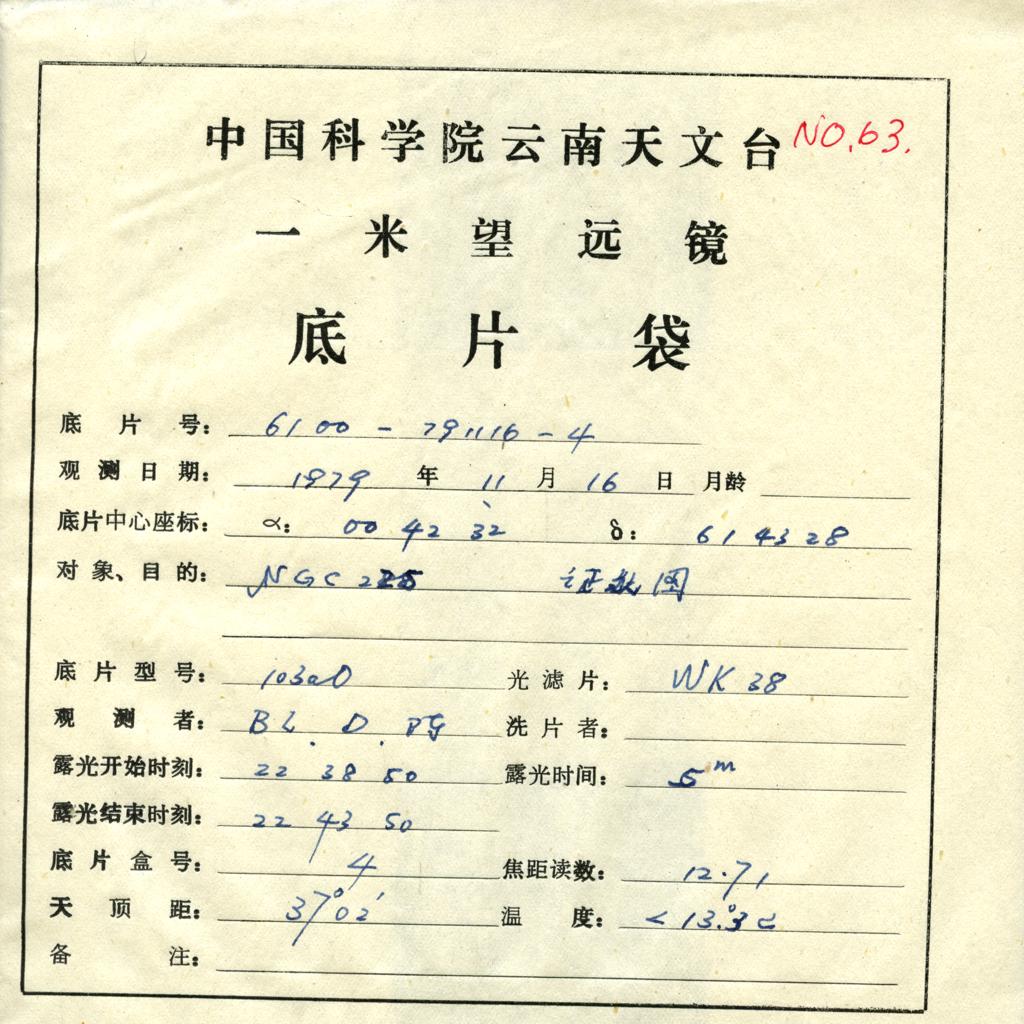 中国科学院云南天文台 NO.63.
一米望远镜
底片袋
底片号: 6100-791116-4
观测日期: 1979 年 11 月 16 日 月龄
底片中心座标: α: 00 42 32 δ: 61 43 28
对象、目的: NGC 225 证认图
底片型号: 103aO 光滤片: WK 38
观测者: B L. D. 洗片者:
露光开始时刻: 22 38 50 露光时间: 5m
露光结束时刻: 22 43 50
底片盒号: 4 焦距读数: 12.71
天顶距: 37°02′ 温度: 13.°3c
备注: